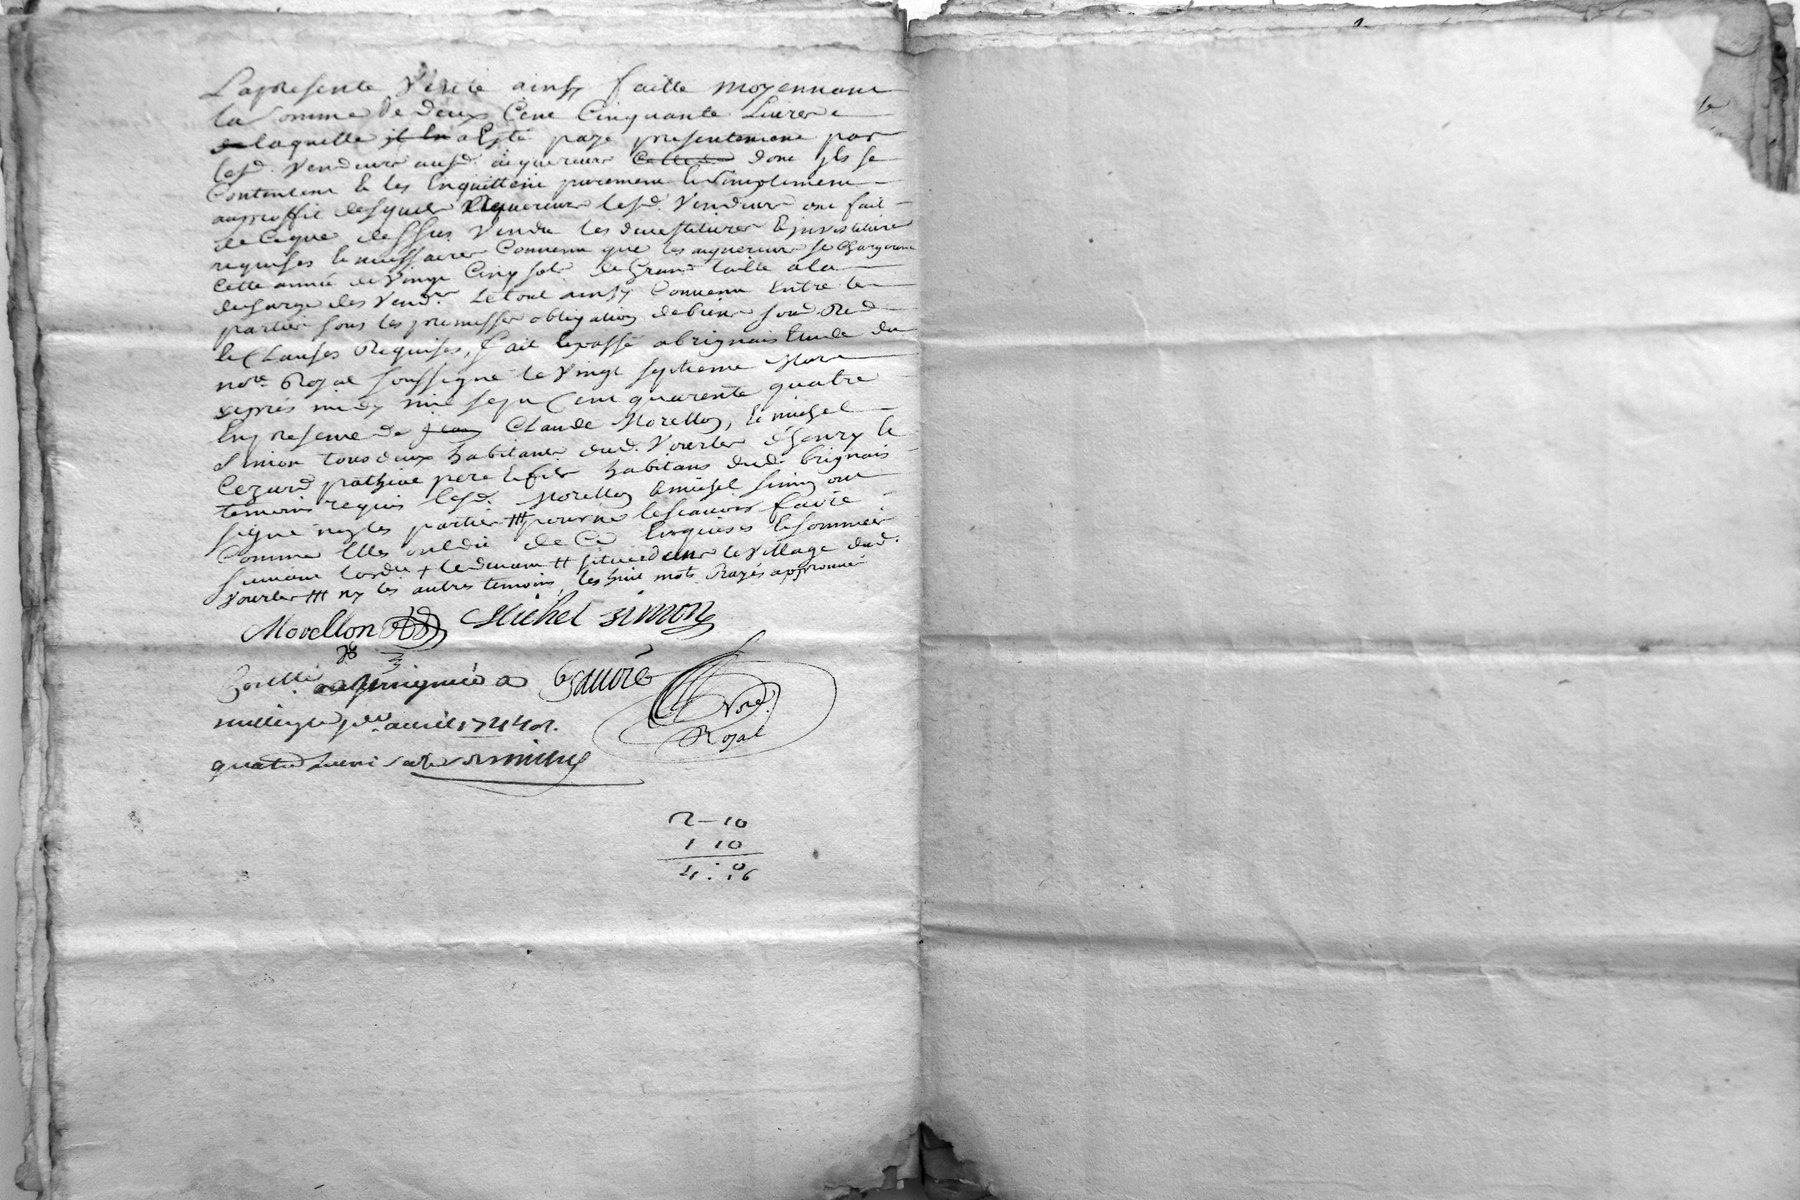 La presente Vente ainsy faitte moyennant
la somme de deux Cent Cinquante Livres
de laquelle il en a Esté payé presentement par
lesd. Vendeurs ausd. acquereurs dont ils se
Contentent & les Enquittent purement & simplement
au proffit desquels acquereurs lesd. Vendeurs ont fait
de ce que dessus Vendu les devestitures & investitures
requises & necessaires Convenu que les acquereurs se chargeront
Cette année de Vingt Cinq sols de Grand taille a la
descharge des Vendrs. Le tout ainsy Convenu Entre les
parties sous les promesses obligations de biens
& Clauses Requises, fait & passé a brignais Etude du
nore. Royal soussigné le Vingt septieme Mars
apres midy mil sept Cent quarente quatre
En presence de jean Claude Morellon, & michel
Simon tous deux habitants dud. Vourles & henry &
pere & fils habitans dud. brignais
temoins requis lesd. Morellon & michel Simon ont
signé ny les parties ††† pour ne le scavoir faire
Comme Elles ont dit de Ce Enquises & sommées
suivant lordce + †† situé dans le Village dud.
Vourles ††† ny les autres temoins les huit mots Rayés approuvés
Morellon Michel simon
a
Nore.
Royal
avril 1744
quatre
2 - 10
1 10
4 : 06